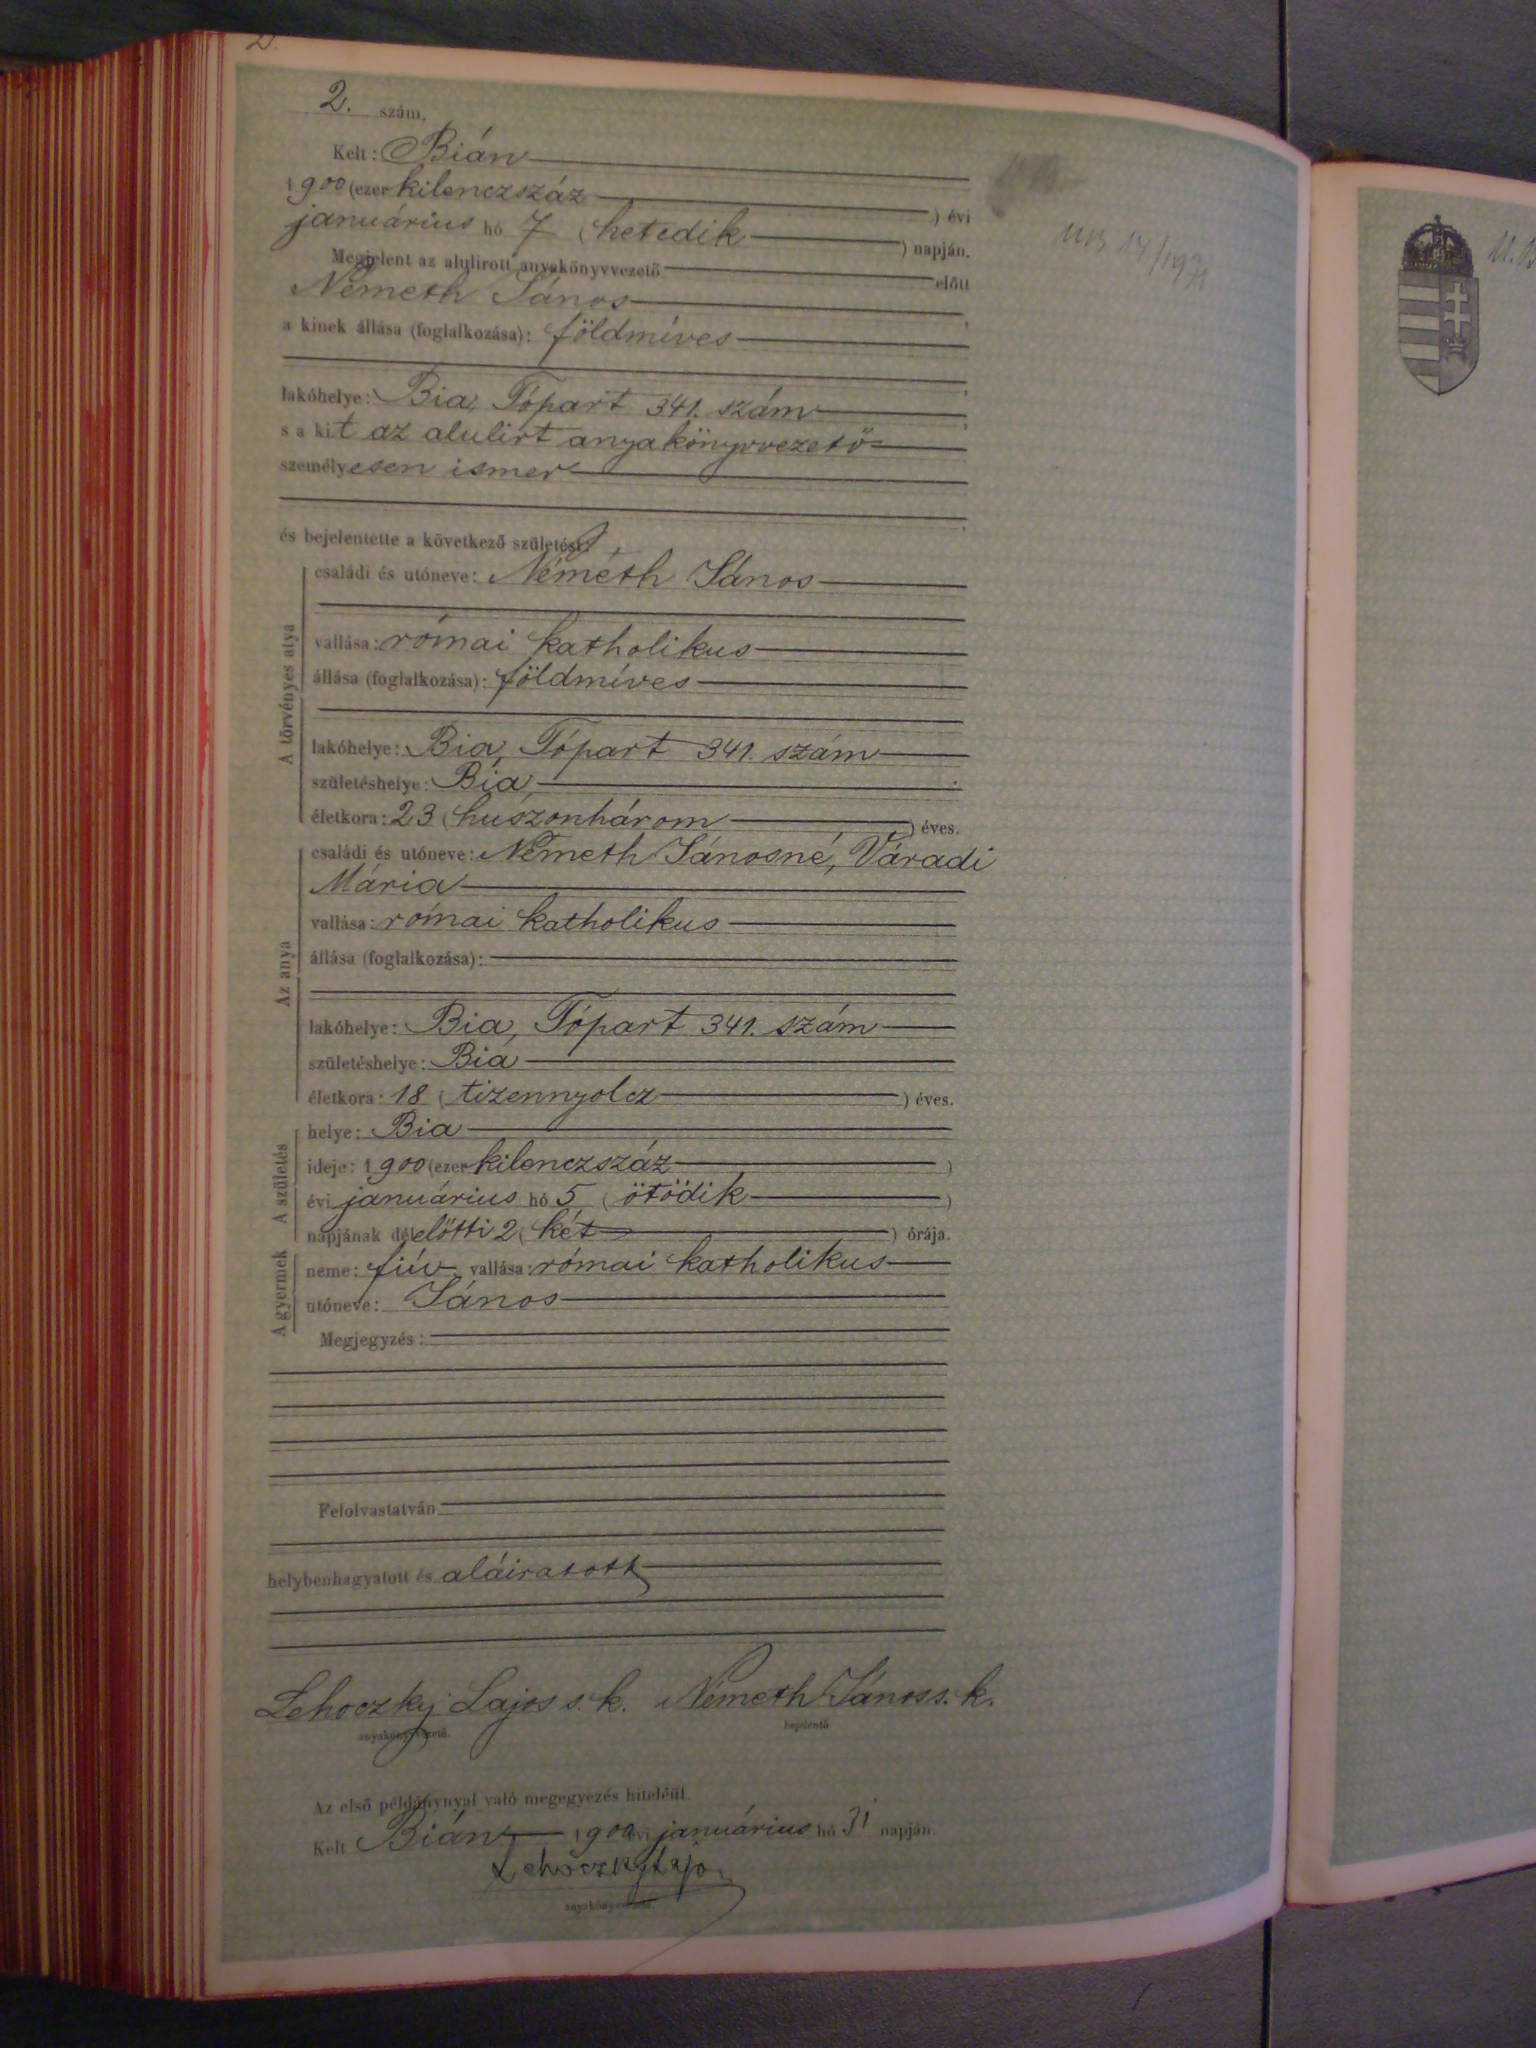 2.
2. szám.
Kelt: Bián
1900 (ezer kilenczszáz ) évi
januárius hó 7 (hetedik ) napján.
Megjelent az alulirott anyakönyvvezető előtt
Németh János ,
a kinek állása (foglalkozása): földmíves
,
lakóhelye: Bia, Tópart 341. szám ,
s a kit az alulirt anyakönyvvezető
személyesen ismer
,
és bejelentette a következő születést:
A törvényes atya
családi és utóneve: Németh János
vallása: római katholikus
állása (foglalkozása): földmíves
lakóhelye: Bia, Tópart 341. szám
születéshelye: Bia,
életkora: 23 (huszonhárom ) éves.
Az anya
családi és utóneve: Németh Jánosné, Váradi
Mária
vallása: római katholikus
állása (foglalkozása):
lakóhelye: Bia, Tópart 341. szám
születéshelye: Bia
életkora: 18 (tizennyolcz ) éves.
A születés
helye: Bia
ideje: 1900 (ezer kilenczszáz )
évi januárius hó 5 (ötödik )
napjának délelőtti 2 (két ) órája.
A gyermek
neme: fiú vallása: római katholikus
utóneve: János
Megjegyzés:
Felolvastatván
helybenhagyatott és aláiratott
Lehoczky Lajos s. k. Németh János s. k.
anyakönyvvezető. bejelentő
Az első példánynyal való megegyezés hiteléül.
Kelt Bián 1900 évi januárius hó 31 napján
Lehoczky Lajos
anyakönyvvezető.